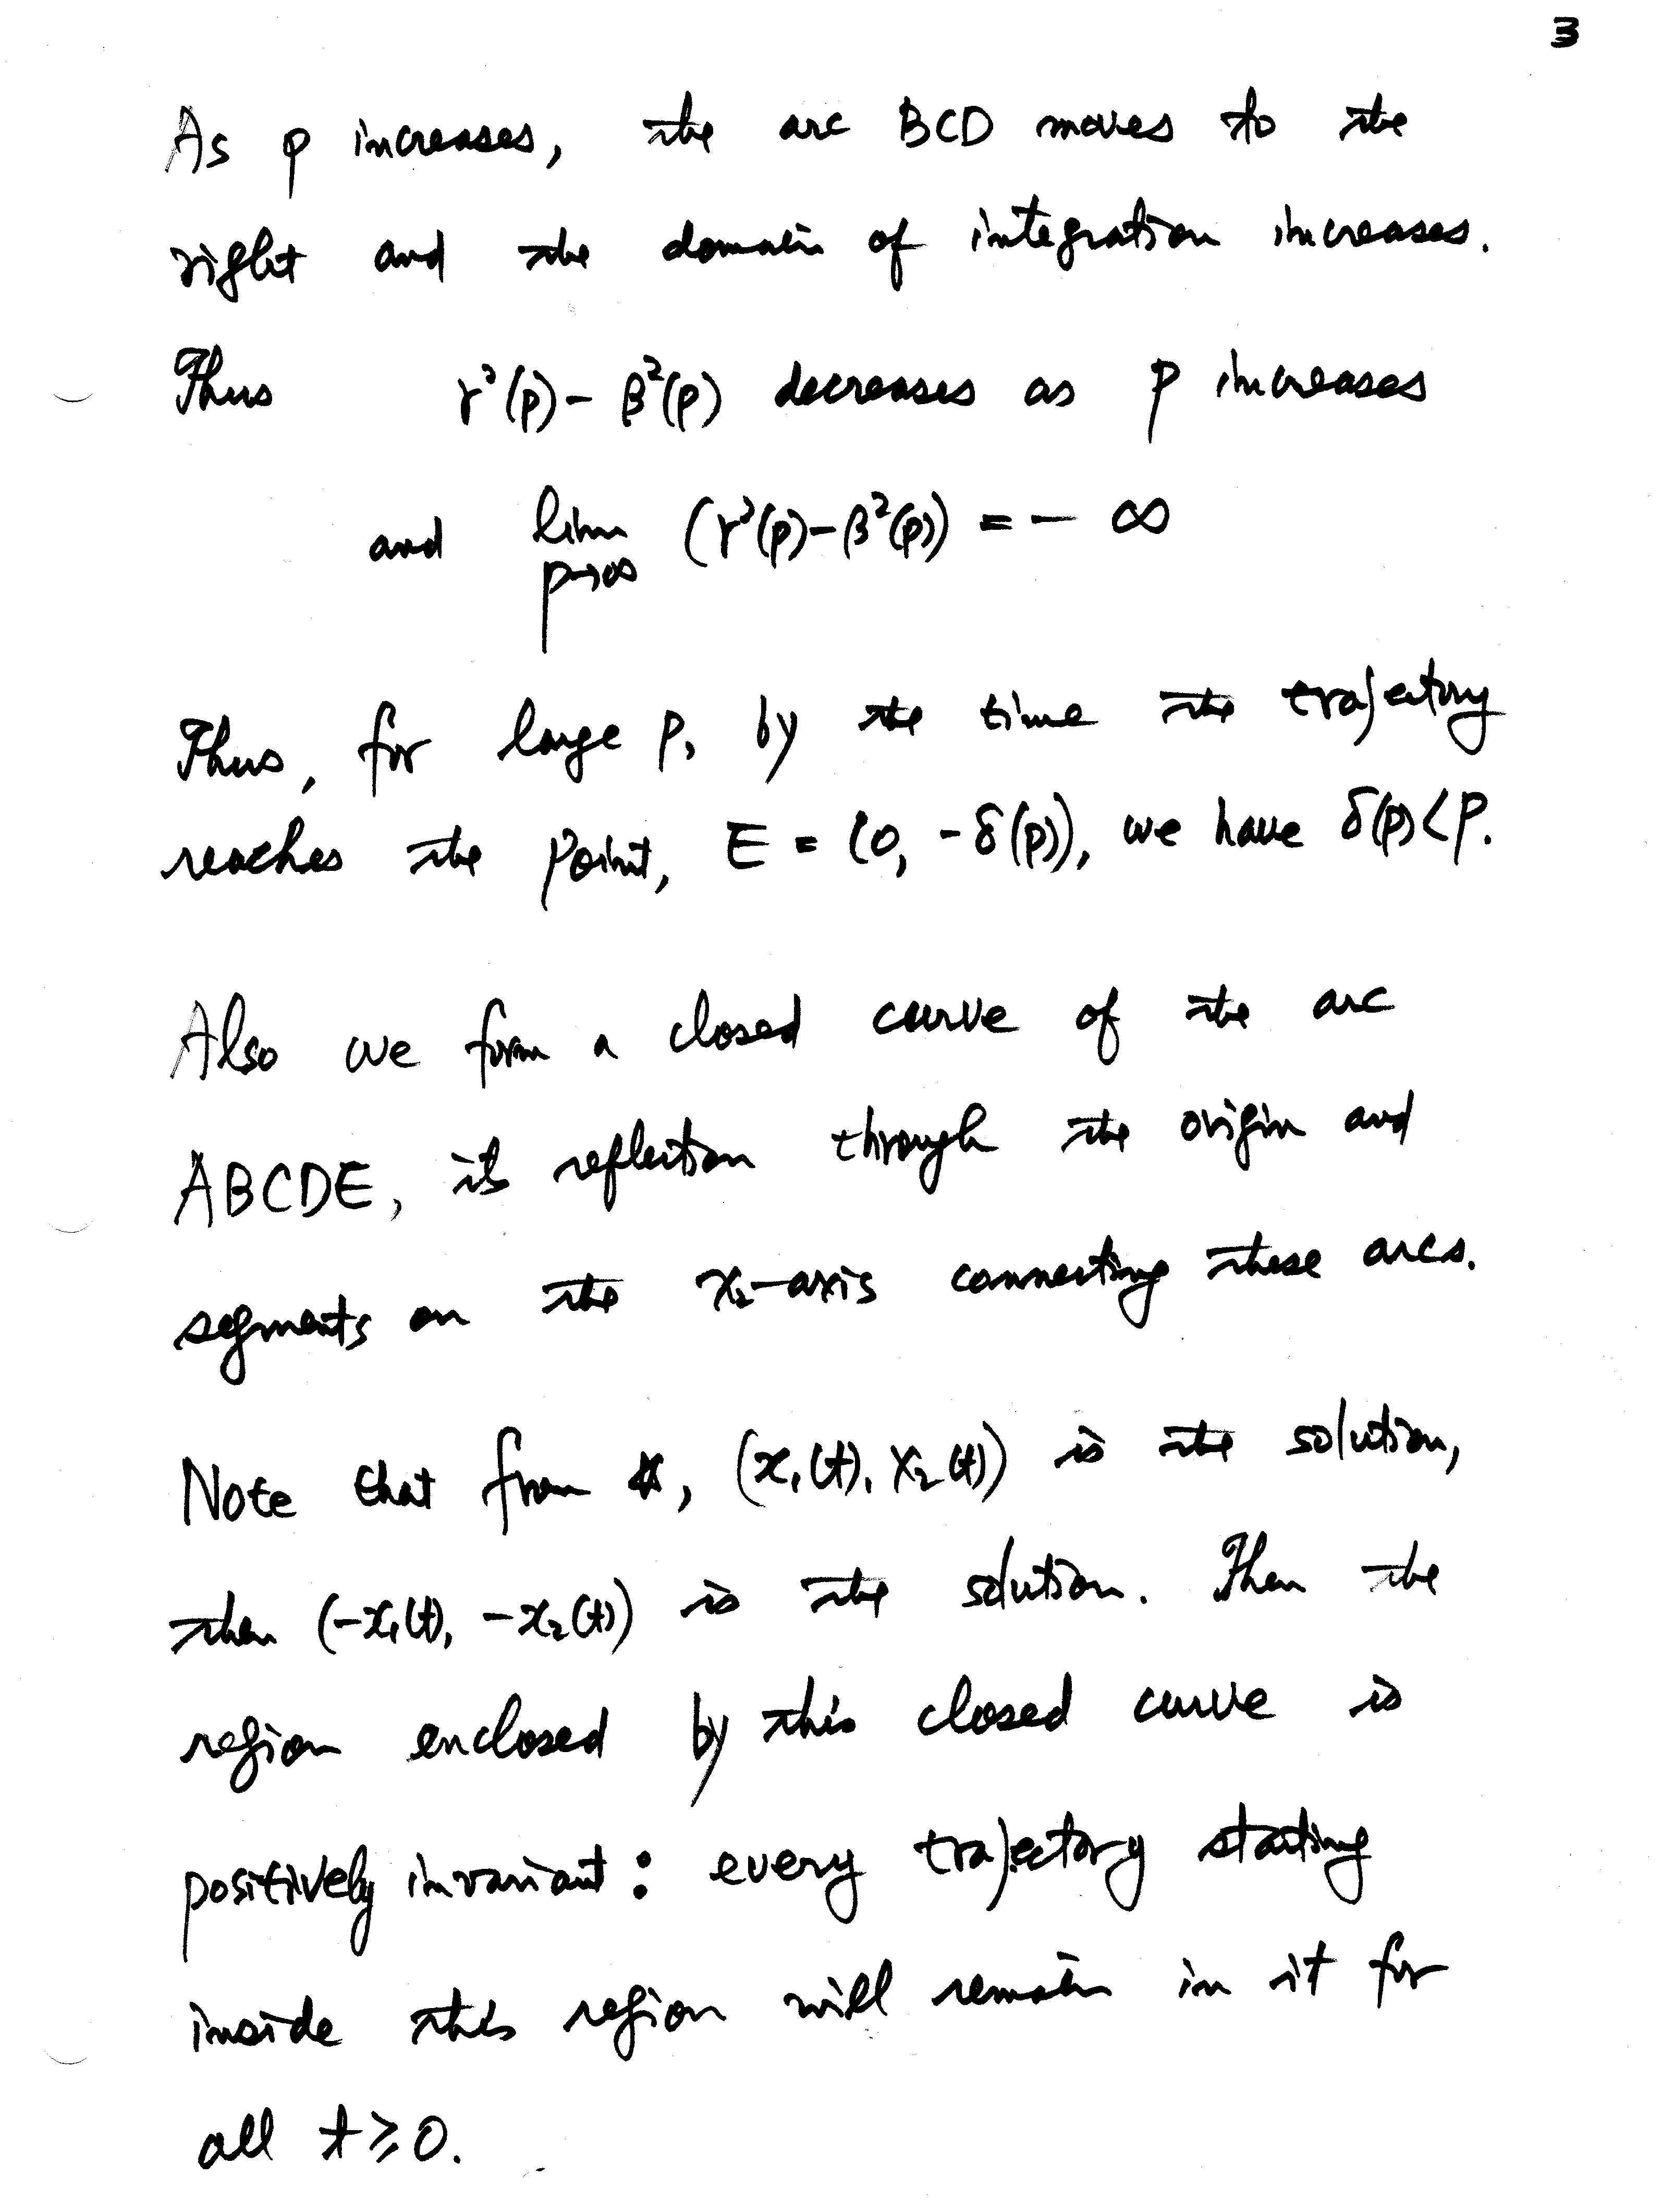 3
As p increases, the arc BCD moves to the
right and the domain of integration increases.
Thus γ²(p) - β²(p) decreases as p increases
and lim (γ²(p) - β²(p)) = - ∞
p→∞
Thus, for large p, by the time the trajectory
reaches the point, E = (0, -δ(p)), we have δ(p) < p.
Also we form a closed curve of the arc
ABCDE, its reflection through the origin and
segments on the x₂-axis connecting these arcs.
Note that from *, (x₁(t), x₂(t)) is the solution,
then (-x₁(t), -x₂(t)) is the solution. Then the
region enclosed by this closed curve is
positively invariant: every trajectory starting
inside this region will remain in it for
all t ≥ 0.